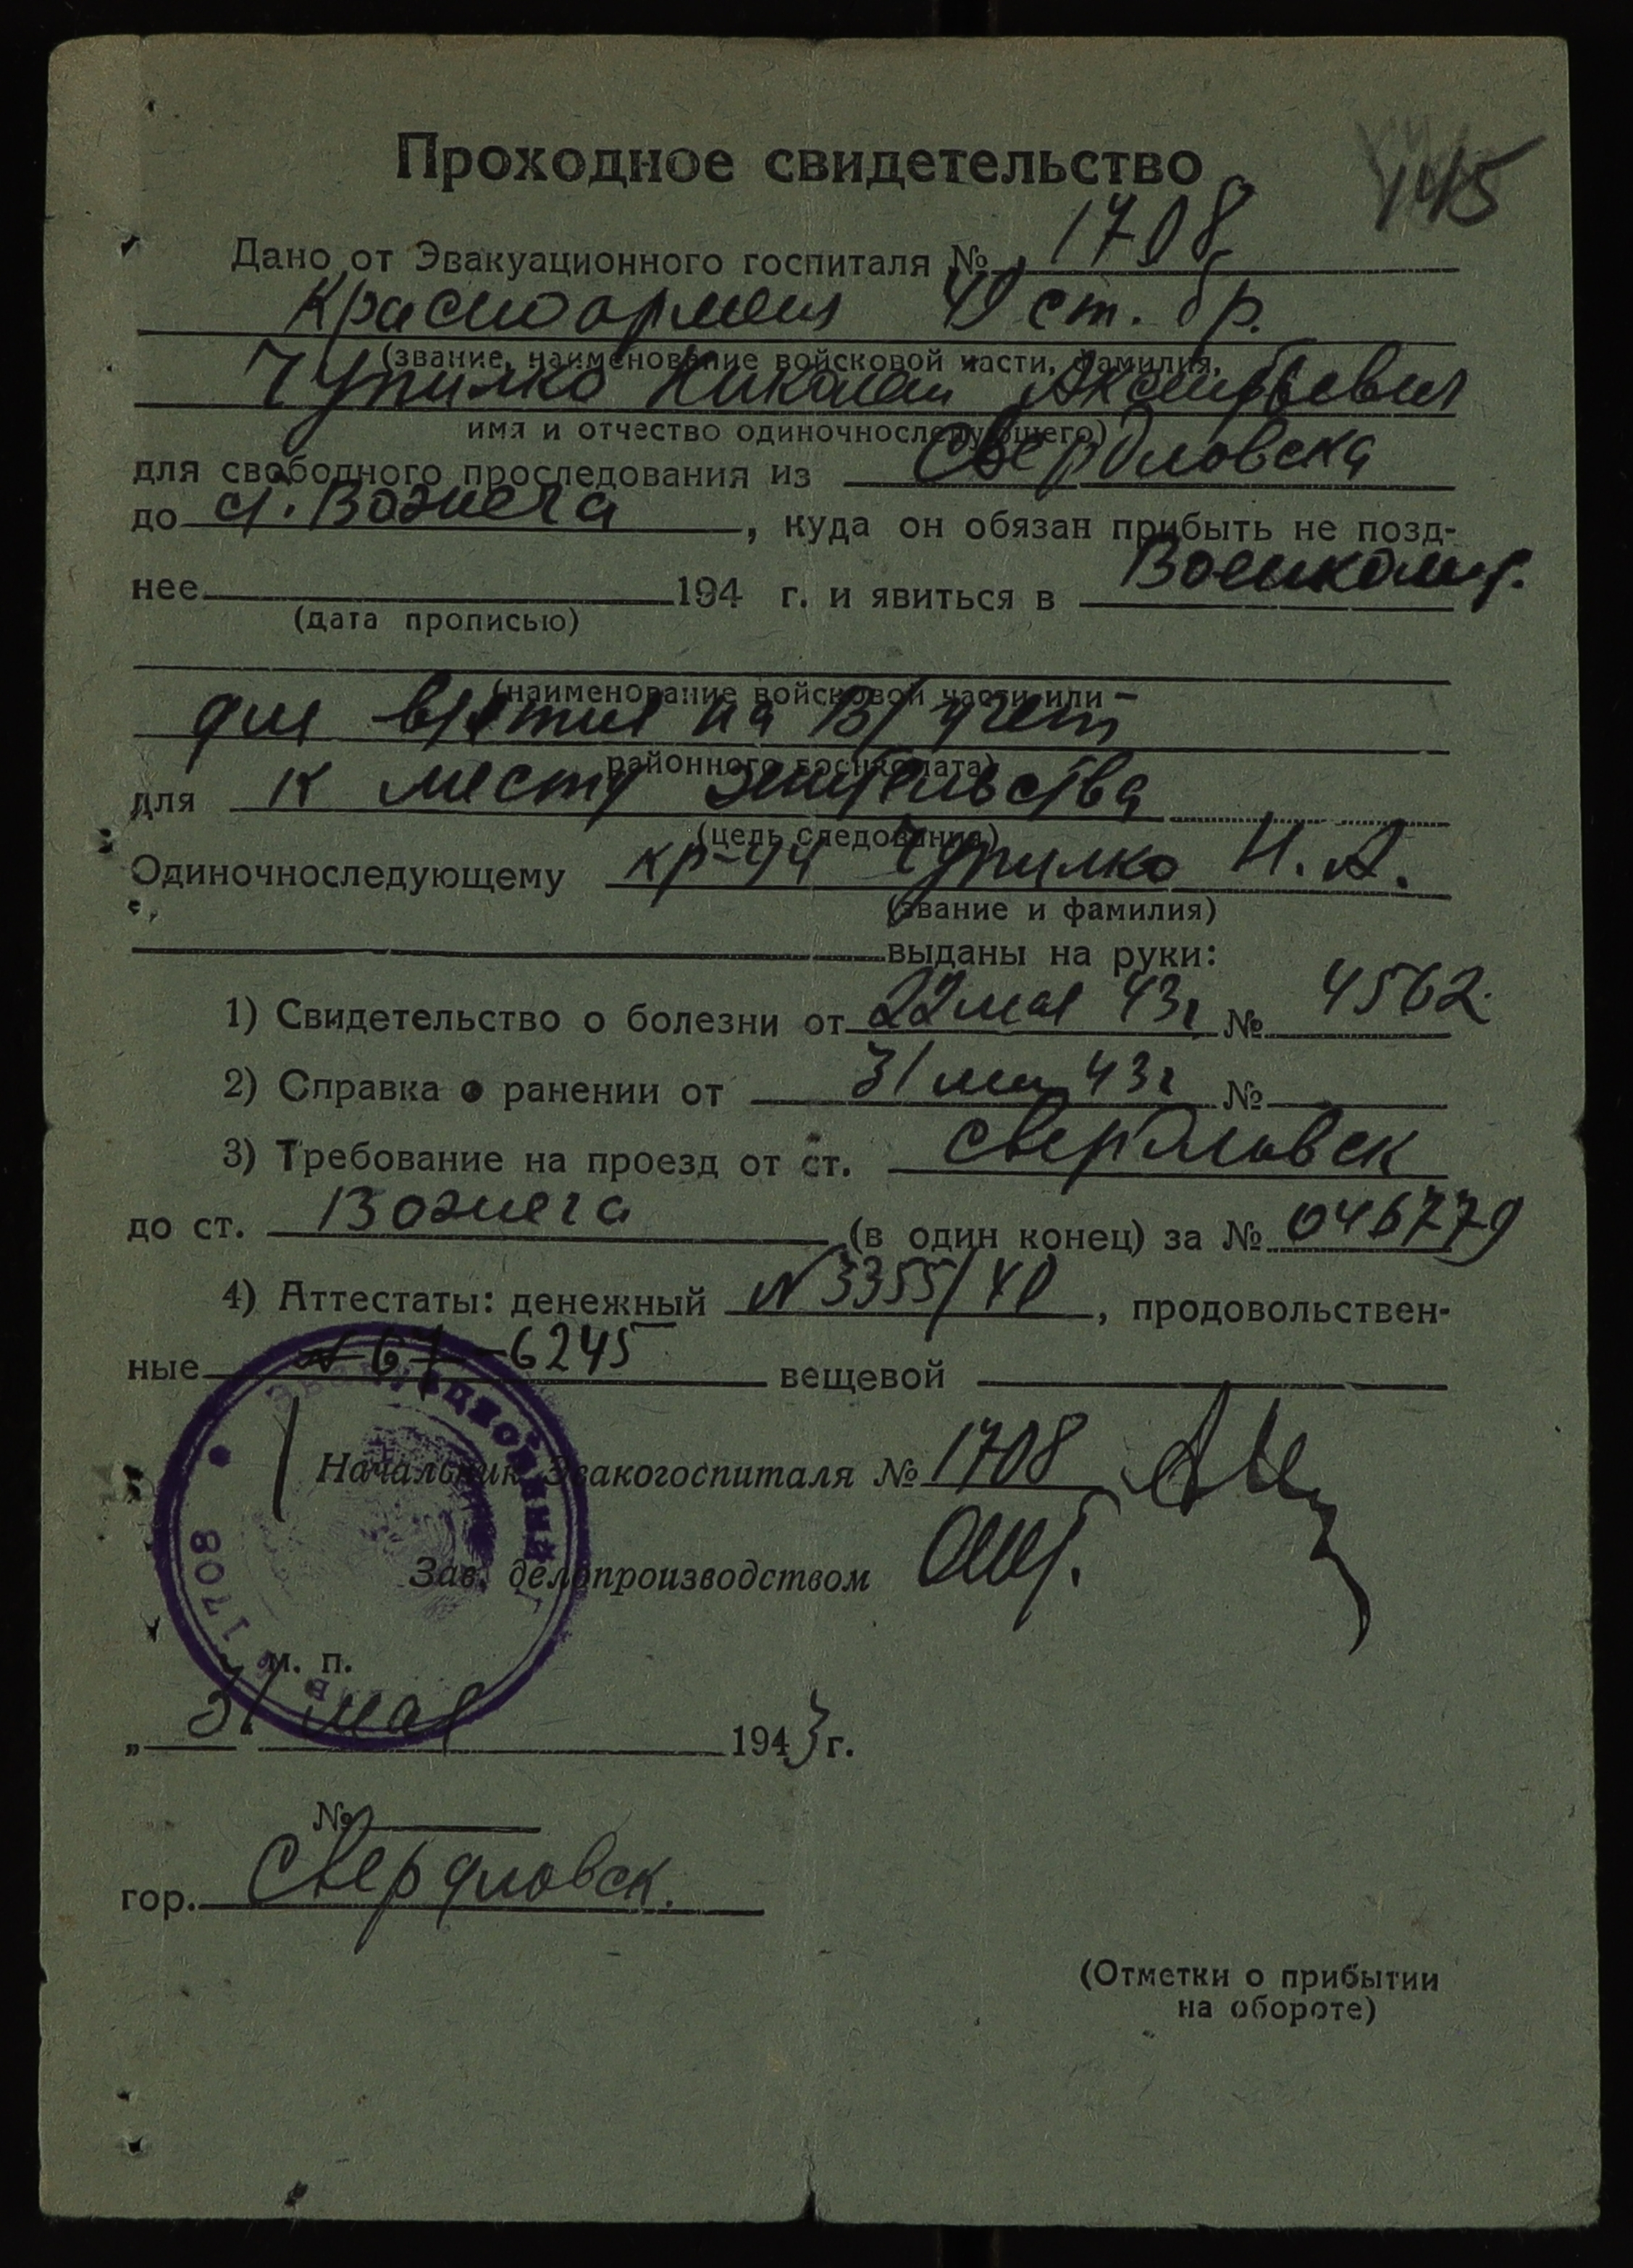 Проходное свидетельство
145
Дано от Эвакуационного госпиталя № 1708
Красноармеец 40 ст. бр.
(звание, наименование войсковой части, фамилия,
Чупилко Николай Аксентьевич
имя и отчество одиночноследующего)
для свободного проследования из Свердловска
до ст. Вожега, куда он обязан прибыть не позд-
нее 194 г. и явиться в Военкомат.
(дата прописью)
(наименование войсковой части или
для взятия на В/учет
районного военкомата)
для к месту жительства
(цель следования)
Одиночноследующему кр-цу Чупилко Н. А.
(звание и фамилия)
выданы на руки:
1) Свидетельство о болезни от 22 мая 43г № 4562
2) Справка о ранении от 31 мая 43г №
3) Требование на проезд от ст. Свердловск
до ст. Вожега (в один конец) за № 046779
4) Аттестаты: денежный № 3355/40, продовольствен-
ные 6245 вещевой
Начальник Эвакогоспиталя № 1708
Зав. делопроизводством
ЭВАКУАЦИОННЫЙ
1708
м. п.
„ 31 мая 1943 г.
№
гор. Свердловск.
(Отметки о прибытии
на обороте)